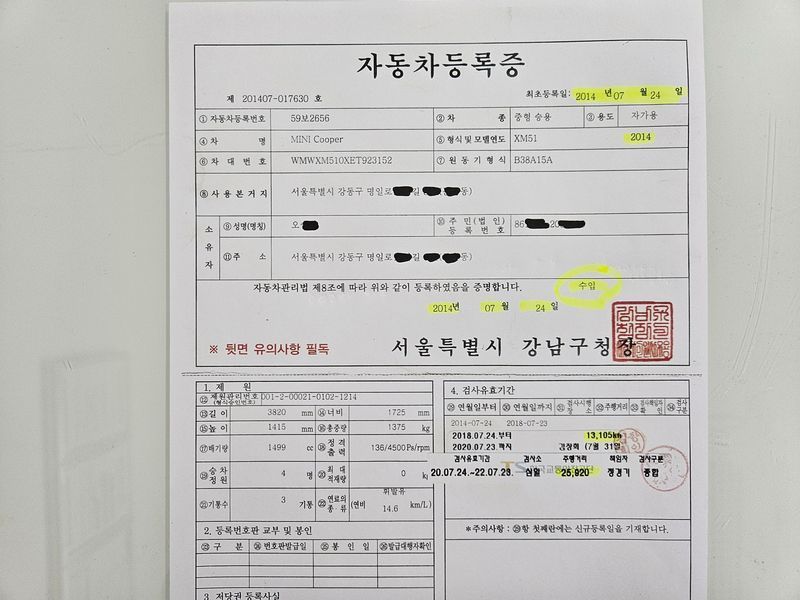 자동차등록증
제 201407-017630 호
최초등록일: 2014 년 07 월 24 일
① 자동차등록번호 59보2656 ② 차 종 중형 승용 ③ 용도 자가용
④ 차 명 MINI Cooper ⑤ 형식 및 모델연도 XM51 2014
⑥ 차 대 번 호 WMWXM510XET923152 ⑦ 원 동 기 형 식 B38A15A
⑧ 사 용 본 거 지 서울특별시 강동구 명일로 길 동)
소유자 ⑨ 성명(명칭) 오 ⑩ 주 민 (법 인) 등 록 번 호 86 20
⑪ 주 소 서울특별시 강동구 명일로 길 동)
자동차관리법 제8조에 따라 위와 같이 등록하였음을 증명합니다. 수입
2014년 07 월 24 일
※ 뒷면 유의사항 필독
서울특별시 강남구청장
1. 제 원
⑫ 제원관리번호 (형식승인번호) D01-2-00021-0102-1214
⑬ 길 이 3820 mm ⑭ 너 비 1725 mm
⑮ 높 이 1415 mm ⑯ 총중량 1375 kg
⑰ 배기량 1499 cc ⑱ 정 격 출 력 136/4500Ps/rpm
⑲ 승 차 정 원 4 명 ⑳ 최 대 적재량 0 kg
㉑ 기통수 3 기통 ㉒ 연료의 종 류 휘발유 (연비 14.6 km/L)
2. 등록번호판 교부 및 봉인
㉓ 구 분 ㉔ 번호판발급일 ㉕ 봉 인 일 ㉖ 발급대행자확인
3. 저당권 등록사실
4. 검사유효기간
㉙ 연월일부터 ㉚ 연월일까지 ㉛ 검사시행장소 ㉜ 주행거리 ㉝ 검사책임자확인 ㉞ 검사구분
2014-07-24 2018-07-23
2018.07.24.부터 13,105km
2020.07.23.까지 (7월 31일)
검사유효기간 검사소 주행거리 책임자 검사구분
20.07.24~22.07.23. 25,920 정경기 종합
*주의사항 : ㉙항 첫째란에는 신규등록일을 기재합니다.